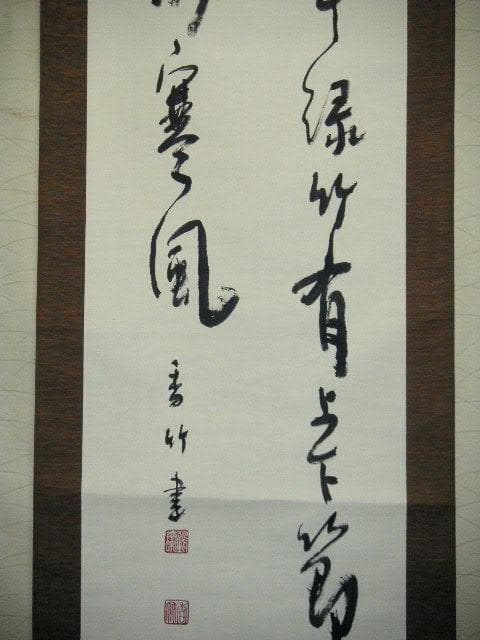 緑竹有上下節
寒風
香竹書